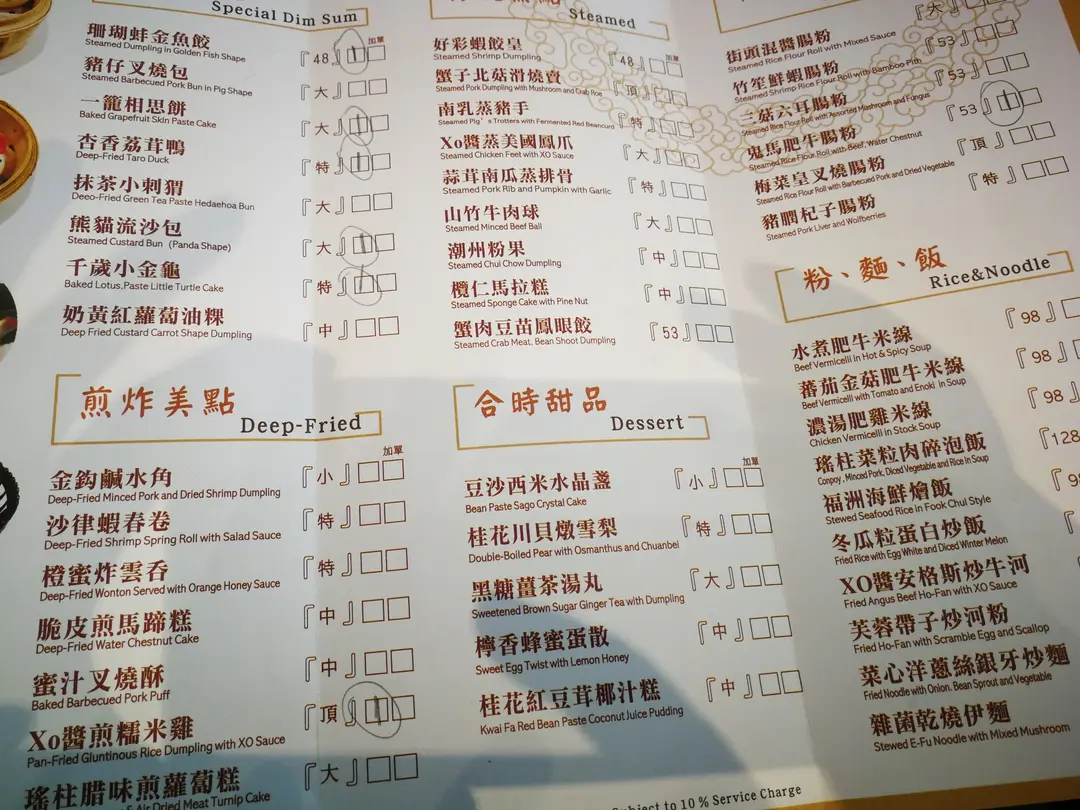 Special Dim Sum
加單
珊瑚蚌金魚餃
『48』
Steamed Dumpling in Golden Fish Shape
豬仔叉燒包
『大』
Steamed Barbecued Pork Bun in Pig Shape
一籠相思餅
『大』
Baked Grapefruit Skin Paste Cake
杏香荔茸鴨
『特』
Deep-Fried Taro Duck
抹茶小刺猬
『大』
Deeo-Fried Green Tea Paste Hedaehoa Bun
熊貓流沙包
『大』
Steamed Custard Bun (Panda Shape)
千歲小金龜
『特』
Baked Lotus,Paste Little Turtle Cake
奶黃紅蘿蔔油粿
『中』
Deep Fried Custard Carrot Shape Dumpling
煎炸美點
Deep-Fried
加單
金鈎鹹水角
『小』
Deep-Fried Minced Pork and Dried Shrimp Dumpling
沙律蝦春卷
『特』
Deep-Fried Shrimp Spring Roll with Salad Sauce
橙蜜炸雲吞
『特』
Deep-Fried Wonton Served with Orange Honey Sauce
脆皮煎馬蹄糕
『中』
Deep-Fried Water Chestnut Cake
蜜汁叉燒酥
『中』
Baked Barbecued Pork Puff
Xo醬煎糯米雞
『頂』
Pan-Fried Gluntinous Rice Dumpling with XO Sauce
瑤柱腊味煎蘿蔔糕
『大』
Air Dried Meat Turnip Cake
Steamed
加單
好彩蝦餃皇
『48』
Steamed Shrimp Dumpling
蟹子北菇滑燒賣
『頂』
Steamed Pork Dumpling with Mushroom and Crab Roe
南乳蒸豬手
『特』
Steamed Pig's Trotters with Fermented Red Beancurd
Xo醬蒸美國鳳爪
『大』
Steamed Chicken Feet with XO Sauce
蒜茸南瓜蒸排骨
『特』
Steamed Pork Rib and Pumpkin with Garlic
山竹牛肉球
『大』
Steamed Minced Beef Ball
潮州粉果
『中』
Steamed Chui Chow Dumpling
欖仁馬拉糕
『中』
Steamed Sponge Cake with Pine Nut
蟹肉豆苗鳳眼餃
『53』
Steamed Crab Meat, Bean Shoot Dumpling
合時甜品
Dessert
加單
豆沙西米水晶盞
『小』
Bean Paste Sago Crystal Cake
桂花川貝燉雪梨
『特』
Double-Boiled Pear with Osmanthus and Chuanbei
黑糖薑茶湯丸
『大』
Sweetened Brown Sugar Ginger Tea with Dumpling
檸香蜂蜜蛋散
『中』
Sweet Egg Twist with Lemon Honey
桂花紅豆茸椰汁糕
『中』
Kwai Fa Red Bean Paste Coconut Juice Pudding
Subject to 10% Service Charge
街頭混醬腸粉
『大』
Steamed Rice Flour Roll with Mixed Sauce
竹笙鮮蝦腸粉
『53』
Steamed Shrimp Rice Flour Roll with Bamboo Pith
三菇六耳腸粉
『53』
Steamed Rice Flour Roll with Assorted Mushroom and Fungus
鬼馬肥牛腸粉
『53』
Steamed Rice Flour Roll with Beef, Water Chestnut
梅菜皇叉燒腸粉
『頂』
Steamed Rice Flour Roll with Barbecued Pork and Dried Vegetable
豬膶杞子腸粉
『特』
Steamed Pork Liver and Wolfberries
粉、麵、飯
Rice&Noodle
水煮肥牛米線
『98』
Beef Vermicelli in Hot & Spicy Soup
蕃茄金菇肥牛米線
『98』
Beef Vermicelli with Tomato and Enoki in Soup
濃湯肥雞米線
『98』
Chicken Vermicelli in Stock Soup
瑤柱菜粒肉碎泡飯
『128
Conpoy, Minced Pork, Diced Vegetable and Rice in Soup
福洲海鮮燴飯
Stewed Seafood Rice in Fook Chul Style
冬瓜粒蛋白炒飯
Fried Rice with Egg White and Diced Winter Melon
XO醬安格斯炒牛河
Fried Angus Beef Ho-Fan with XO Sauce
芙蓉帶子炒河粉
Fried Ho-Fan with Scramble Egg and Scallop
菜心洋蔥絲銀牙炒麵
Fried Noodle with Onion, Bean Sprout and Vegetable
雜菌乾燒伊麵
Stewed E-Fu Noodle with Mixed Mushroom